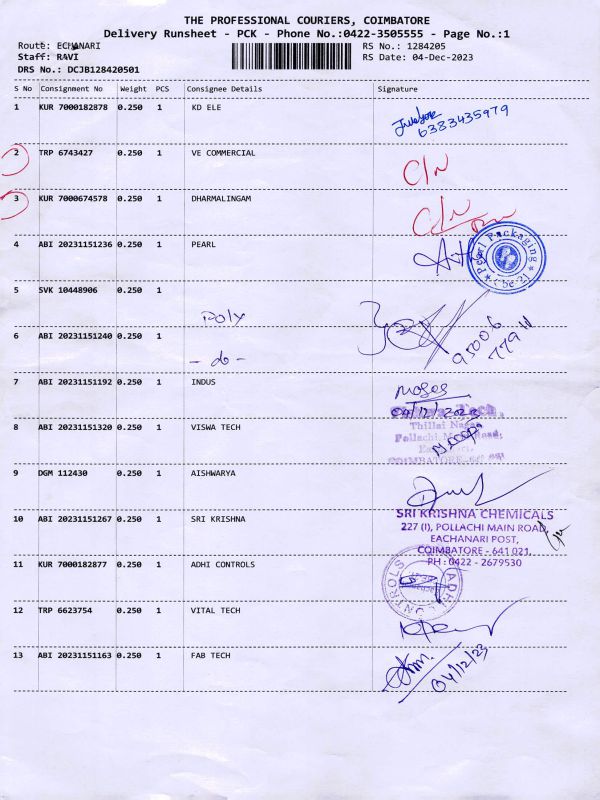 THE PROFESSIONAL COURIERS, COIMBATORE
Delivery Runsheet - PCK - Phone No.:0422-3505555 - Page No.:1
Route: ECHANARI RS No.: 1284205
Staff: RAVI RS Date: 04-Dec-2023
DRS No.: DCJB128420501
S No Consignment No Weight PCS Consignee Details Signature
1 KUR 7000182878 0.250 1 KD ELE
6383435979
2 TRP 6743427 0.250 1 VE COMMERCIAL
C/N
3 KUR 7000674578 0.250 1 DHARMALINGAM
C/N
4 ABI 20231151236 0.250 1 PEARL
Pearl Packaging
5 SVK 10448906 0.250 1
Poly
6 ABI 20231151240 0.250 1
- do -
95006
7 ABI 20231151192 0.250 1 INDUS
Moses
04/12/2023
8 ABI 20231151320 0.250 1 VISWA TECH
Thillai Nagar
Pollachi Main Road,
COIMBATORE
9 DGM 112430 0.250 1 AISHWARYA
10 ABI 20231151267 0.250 1 SRI KRISHNA
SRI KRISHNA CHEMICALS
227 (I), POLLACHI MAIN ROAD,
EACHANARI POST,
COIMBATORE - 641 021.
PH : 0422 - 2679530
11 KUR 7000182877 0.250 1 ADHI CONTROLS
ADHI CONTROLS
12 TRP 6623754 0.250 1 VITAL TECH
13 ABI 20231151163 0.250 1 FAB TECH
04/12/23